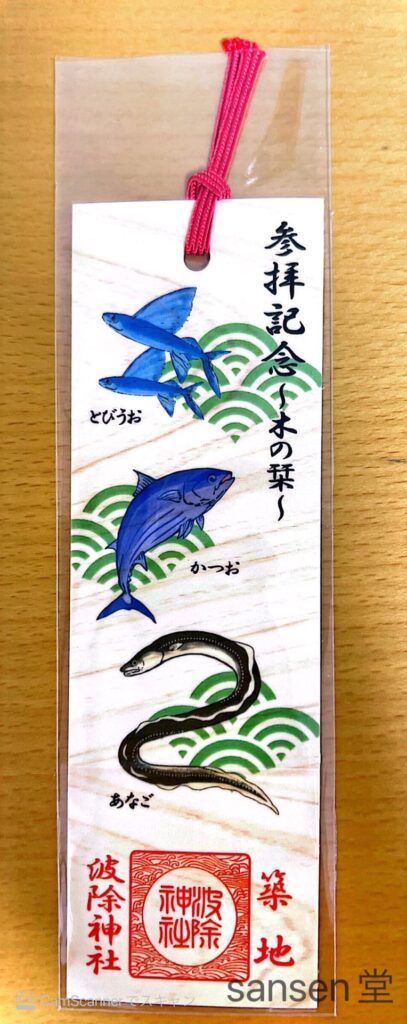 参拝記念～木の栞～
とびうお
かつお
あなご
築地
波除神社
波除
神社
CamScannerでスキャン
sansen堂